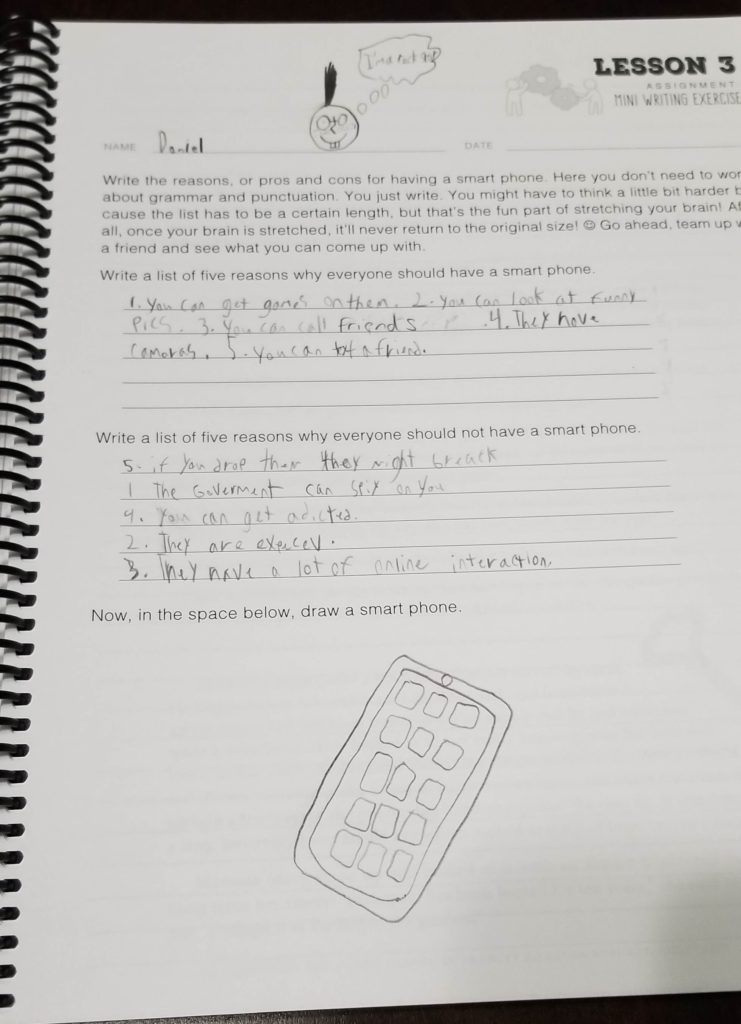 I'm a rock
LESSON 3
ASSIGNMENT
MINI WRITING EXERCISE
NAME Daniel DATE
Write the reasons, or pros and cons for having a smart phone. Here you don't need to wor
about grammar and punctuation. You just write. You might have to think a little bit harder b
cause the list has to be a certain length, but that's the fun part of stretching your brain! Af
all, once your brain is stretched, it'll never return to the original size! ☺ Go ahead, team up w
a friend and see what you can come up with.
Write a list of five reasons why everyone should have a smart phone.
1. You can get games on them. 2. You can look at funny
Pics. 3. You can call friends. 4. They have
Cameras. 5. You can text a friend.
Write a list of five reasons why everyone should not have a smart phone.
5. if you drop them they might breack
1 The Goverment can on you
4. You can get adicted.
2. They are
3. They have a lot of online interaction.
Now, in the space below, draw a smart phone.